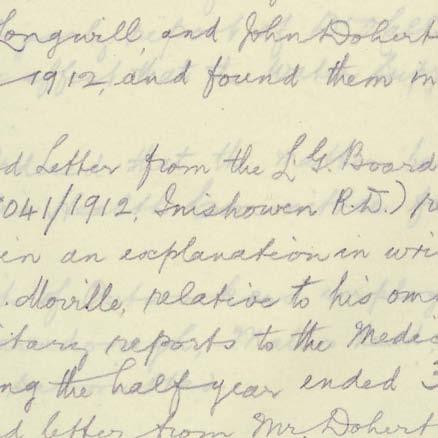 Longwill, and John Dohert
1912, and found them in
d Letter from the L. G. Board
041/1912, Inishowen R.D.)
in an explanation in wri
. Moville, relative to his omi
itary reports to the Medic
ing the half year ended 3
d letter from Mr. Dohert